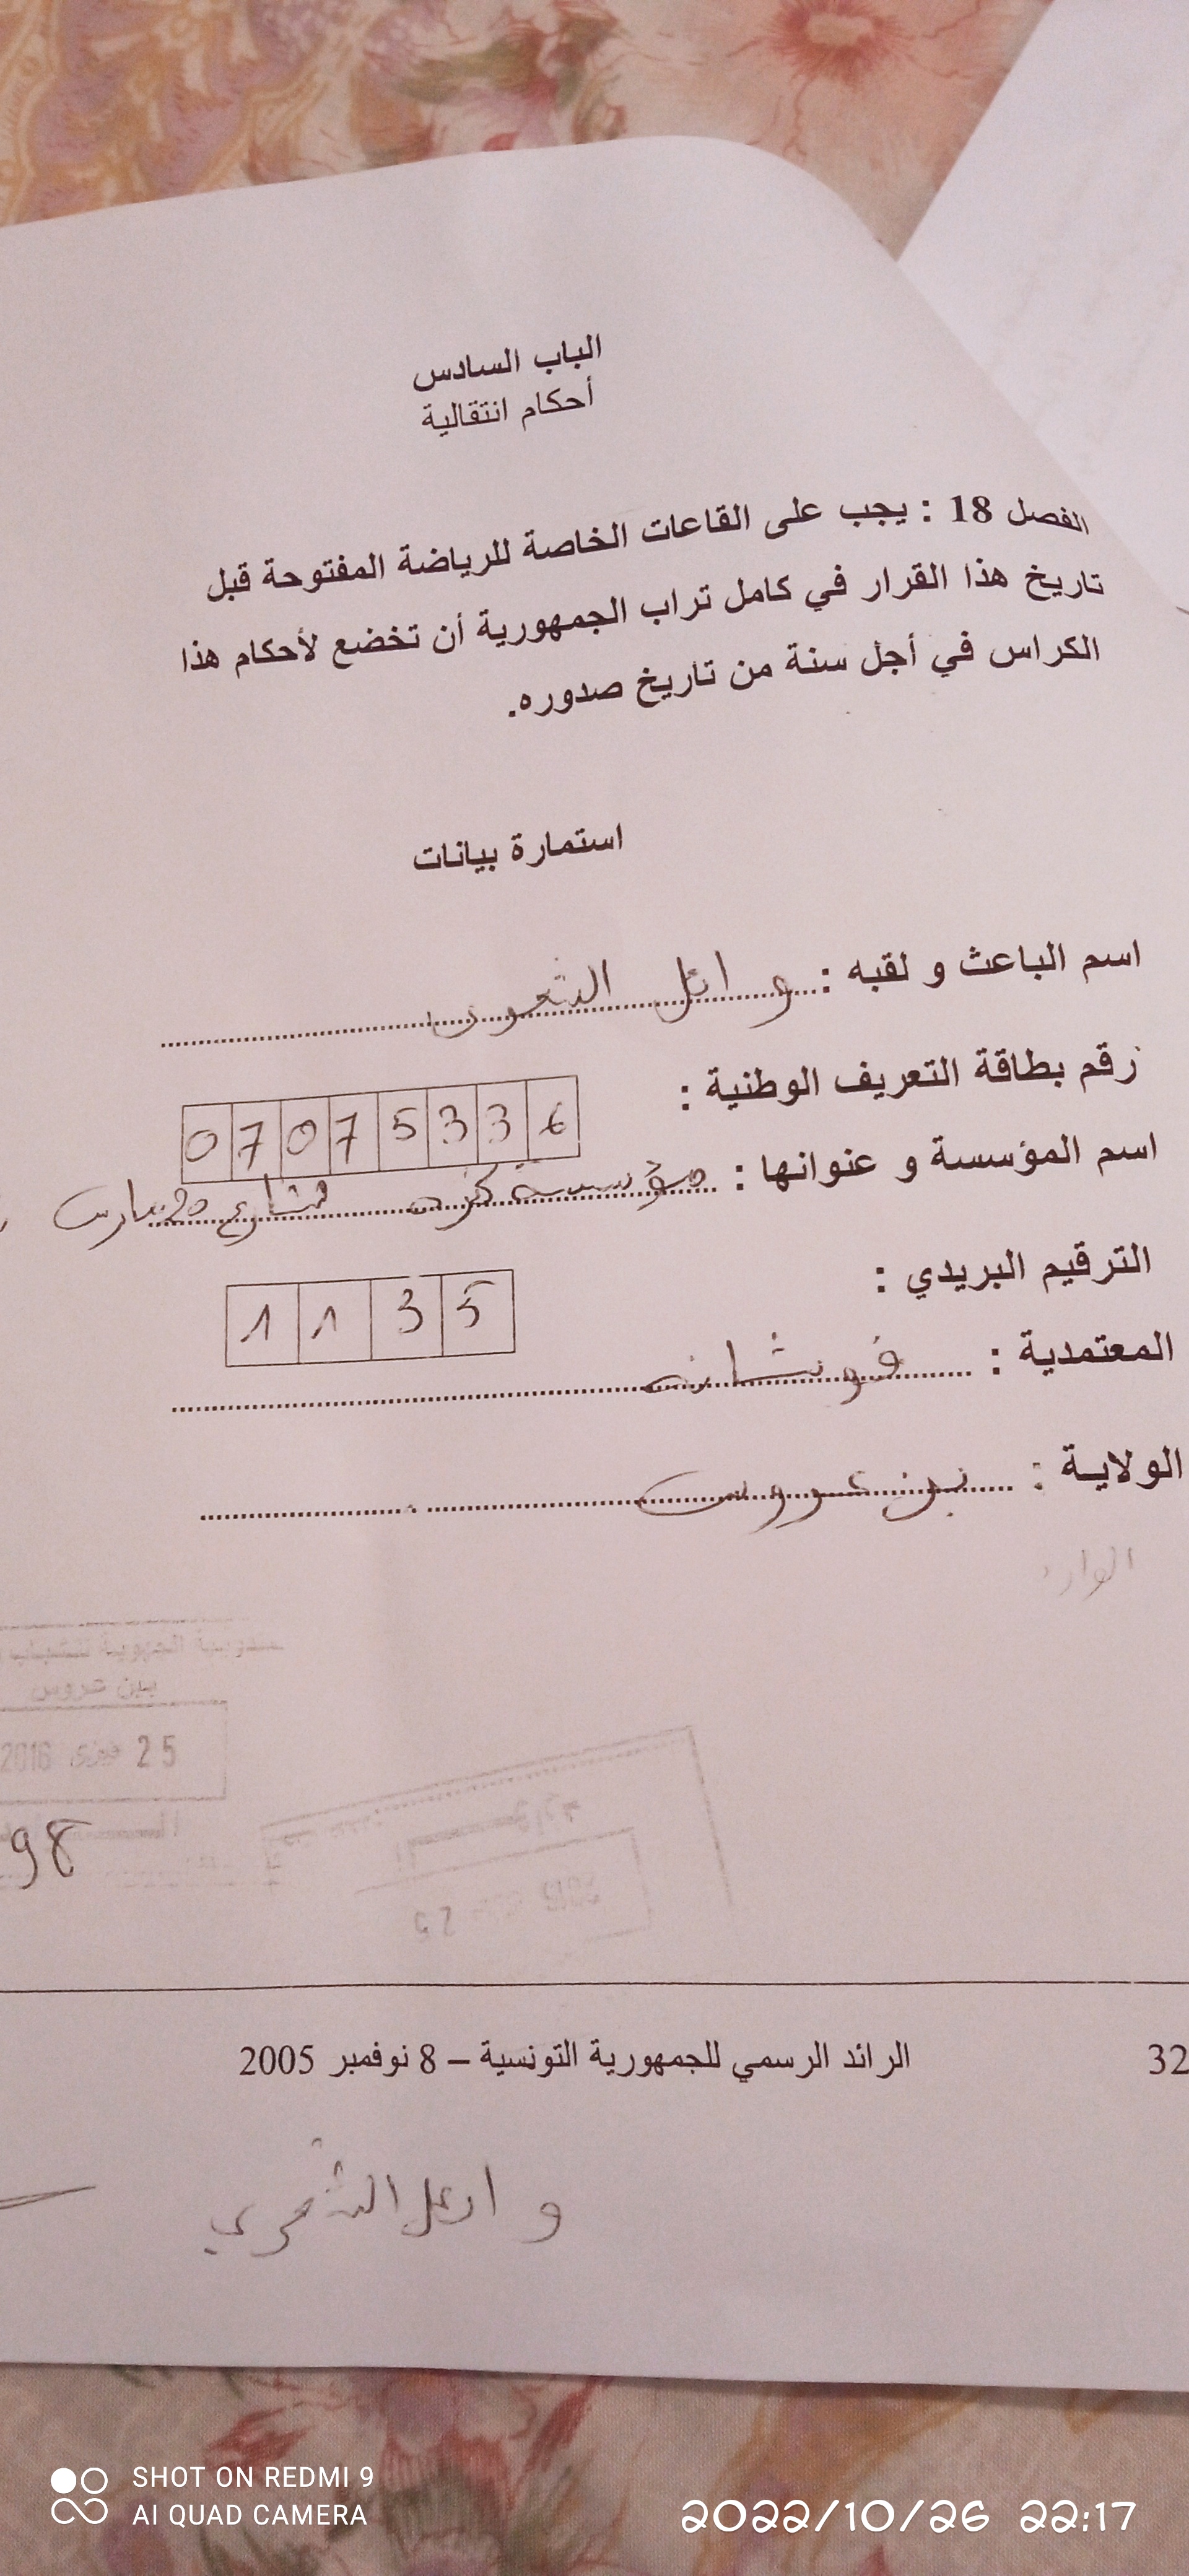 الباب السادس
أحكام انتقالية
الفصل 18 : يجب على القاعات الخاصة للرياضة المفتوحة قبل
تاريخ هذا القرار في كامل تراب الجمهورية أن تخضع لأحكام هذا
الكراس في أجل سنة من تاريخ صدوره.
استمارة بيانات
اسم الباعث و لقبه : وائل
رقم بطاقة التعريف الوطنية : 0 7 0 7 5 3 3 6
اسم المؤسسة و عنوانها : مؤسسة شارع 20 مارس
الترقيم البريدي : 1 1 3 5
المعتمدية : فوشانة
الولاية : بن عروس
الجهوية للشباب
ببن عروس
25 2016
98
25 2016
32
الرائد الرسمي للجمهورية التونسية – 8 نوفمبر 2005
وائل
SHOT ON REDMI 9
AI QUAD CAMERA
2022/10/26 22:17